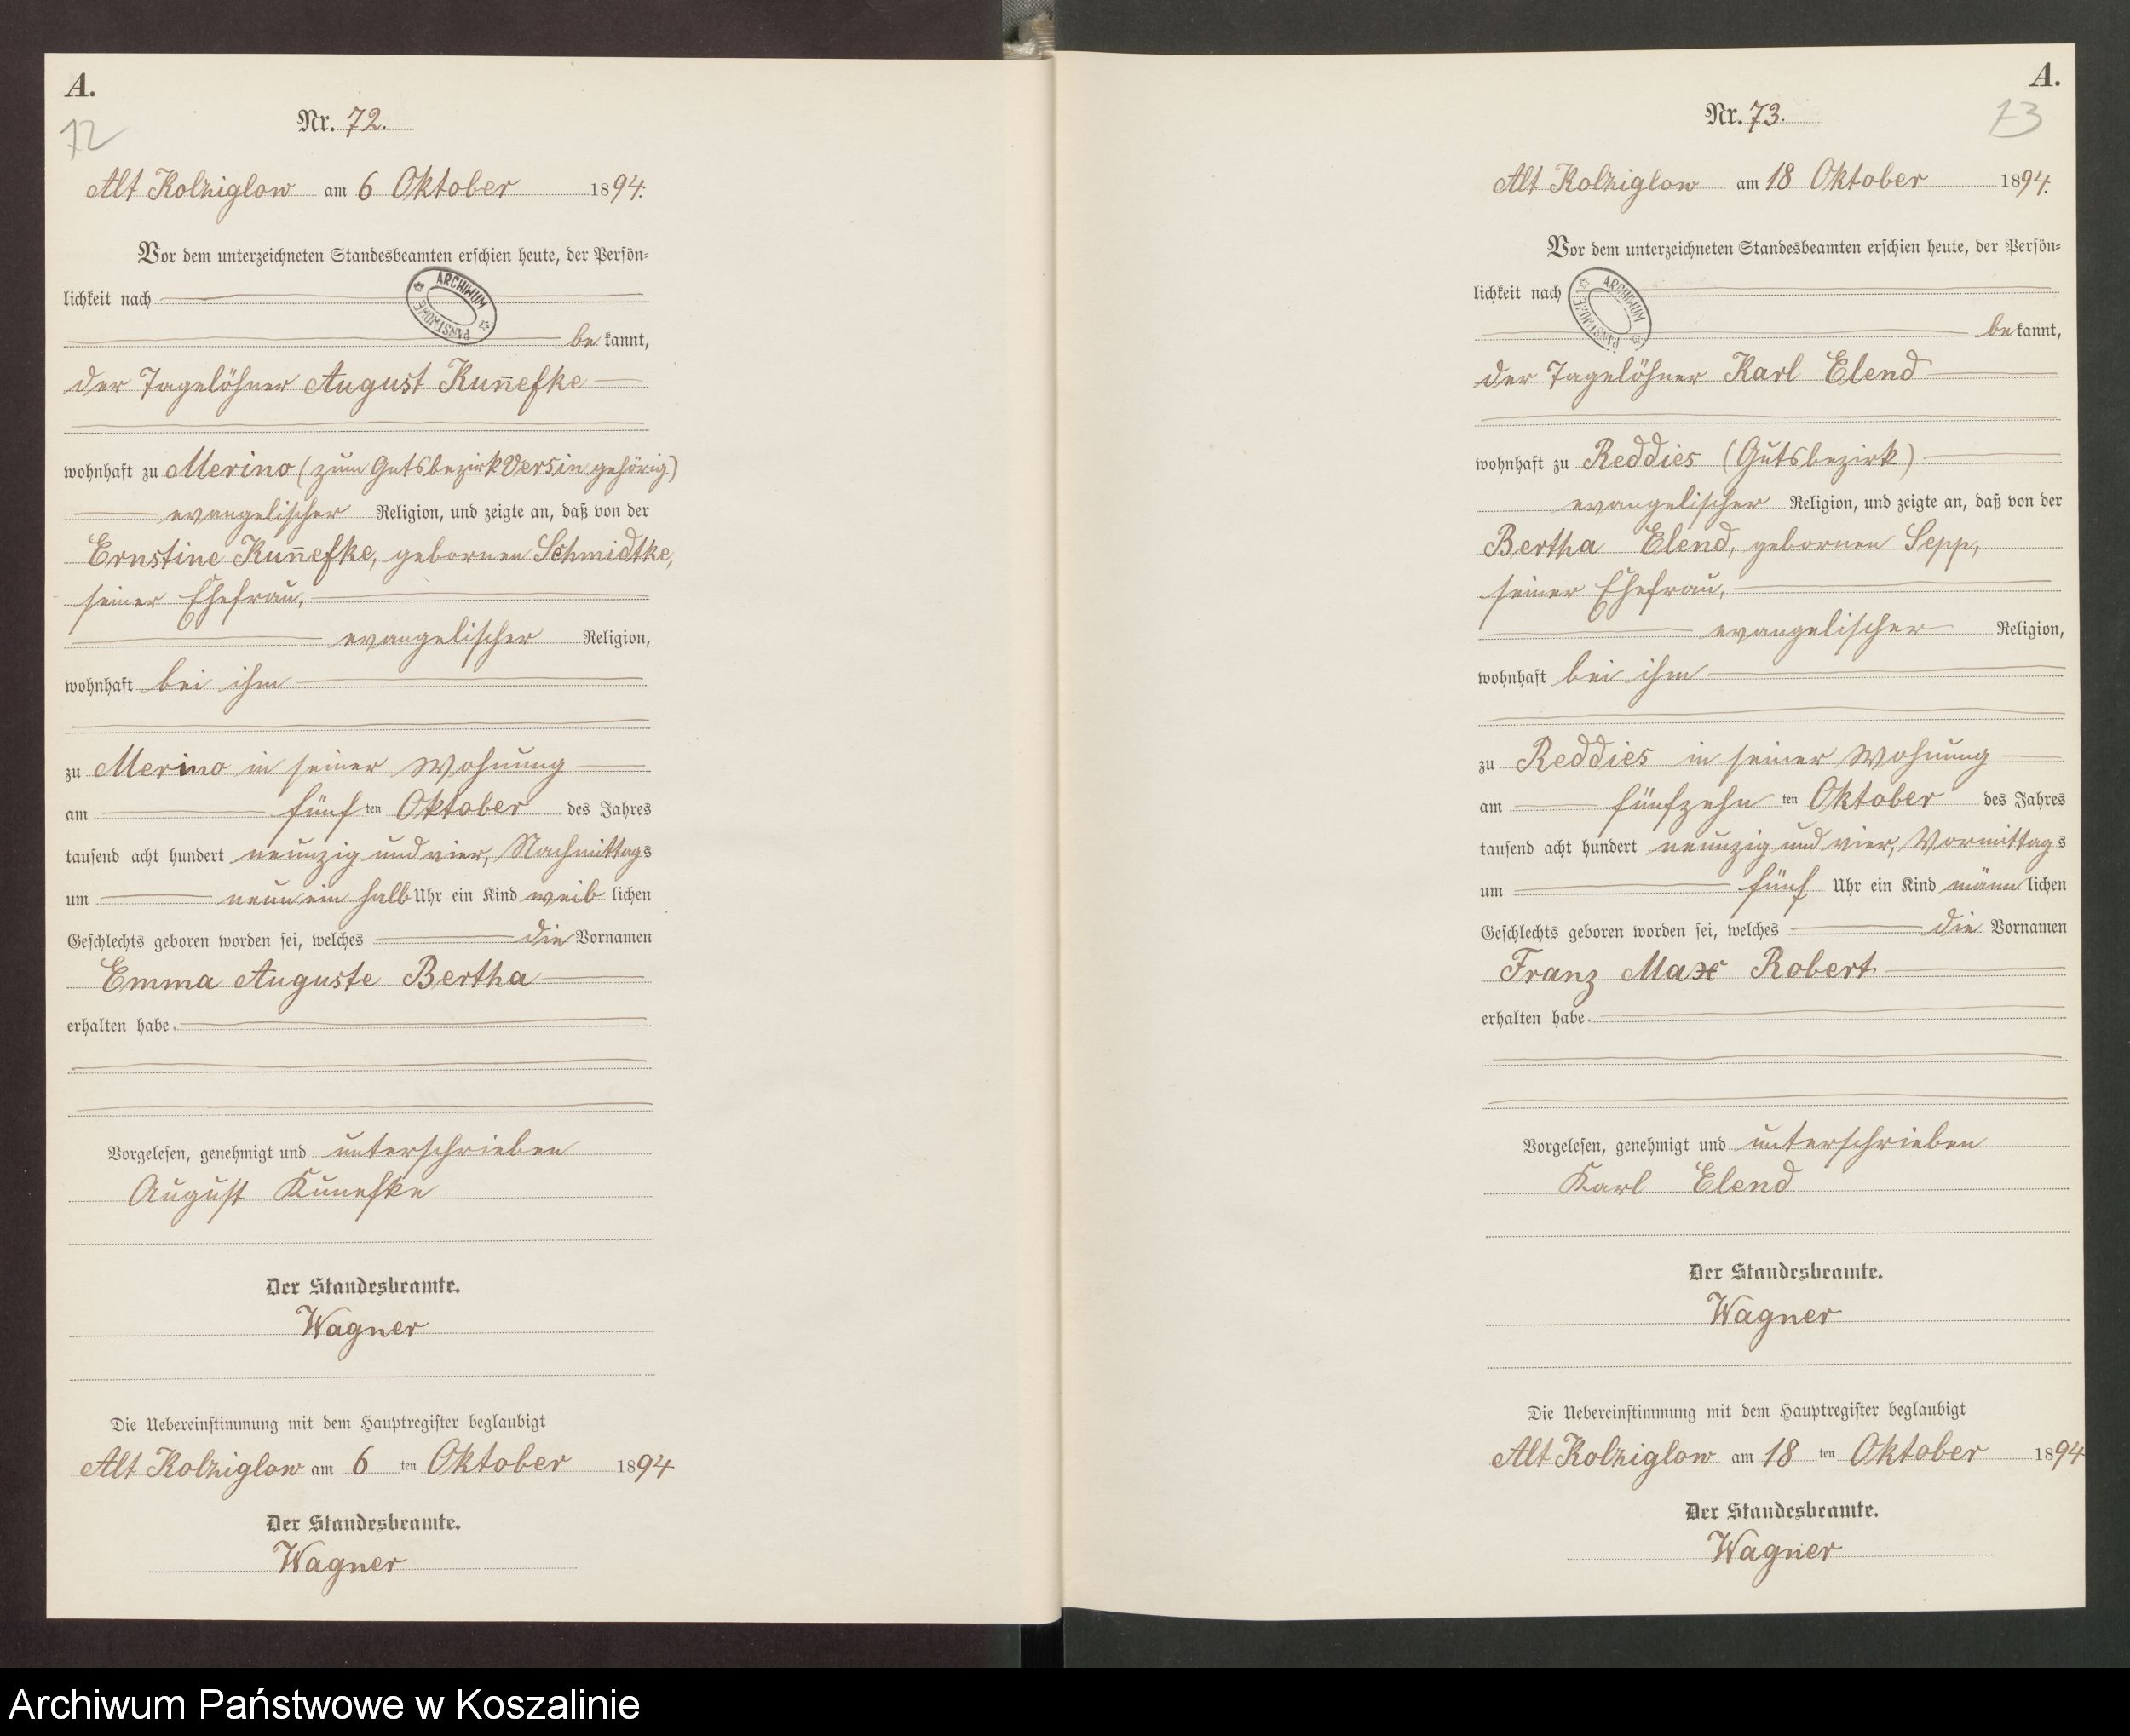 A.
72
Nr. 72.
Alt Kolziglow am 6 Oktober 1894.
Vor dem unterzeichneten Standesbeamten erschien heute, der Persön-
lichkeit nach
ARCHIWUM PAŃSTWOWE
bekannt,
der Tagelöhner August Kun̄efke
wohnhaft zu Merino (zum Gutsbezirk Versin gehörig)
evangelischer Religion, und zeigte an, daß von der
Ernstine Kun̄efke, gebornen Schmidtke,
seiner Ehefrau,
evangelischer Religion,
wohnhaft bei ihm
zu Merino in seiner Wohnung
am fünf ten Oktober des Jahres
tausend acht hundert neunzig und vier, Nachmittags
um neun ein halb Uhr ein Kind weib lichen
Geschlechts geboren worden sei, welches die Vornamen
Emma Auguste Bertha
erhalten habe.
Vorgelesen, genehmigt und unterschrieben
August Kunefke
Der Standesbeamte.
Wagner
Die Uebereinstimmung mit dem Hauptregister beglaubigt
Alt Kolziglow am 6 ten Oktober 1894
Der Standesbeamte.
Wagner
A.
73
Nr. 73.
Alt Kolziglow am 18 Oktober 1894.
Vor dem unterzeichneten Standesbeamten erschien heute, der Persön-
lichkeit nach
ARCHIWUM PAŃSTWOWE
bekannt,
der Tagelöhner Karl Elend
wohnhaft zu Reddies (Gutsbezirk)
evangelischer Religion, und zeigte an, daß von der
Bertha Elend, gebornen Sepp,
seiner Ehefrau,
evangelischer Religion,
wohnhaft bei ihm
zu Reddies in seiner Wohnung
am fünfzehn ten Oktober des Jahres
tausend acht hundert neunzig und vier, Vormittags
um fünf Uhr ein Kind männ lichen
Geschlechts geboren worden sei, welches die Vornamen
Franz Max Robert
erhalten habe.
Vorgelesen, genehmigt und unterschrieben
Karl Elend
Der Standesbeamte.
Wagner
Die Uebereinstimmung mit dem Hauptregister beglaubigt
Alt Kolziglow am 18 ten Oktober 1894
Der Standesbeamte.
Wagner
Archiwum Państwowe w Koszalinie